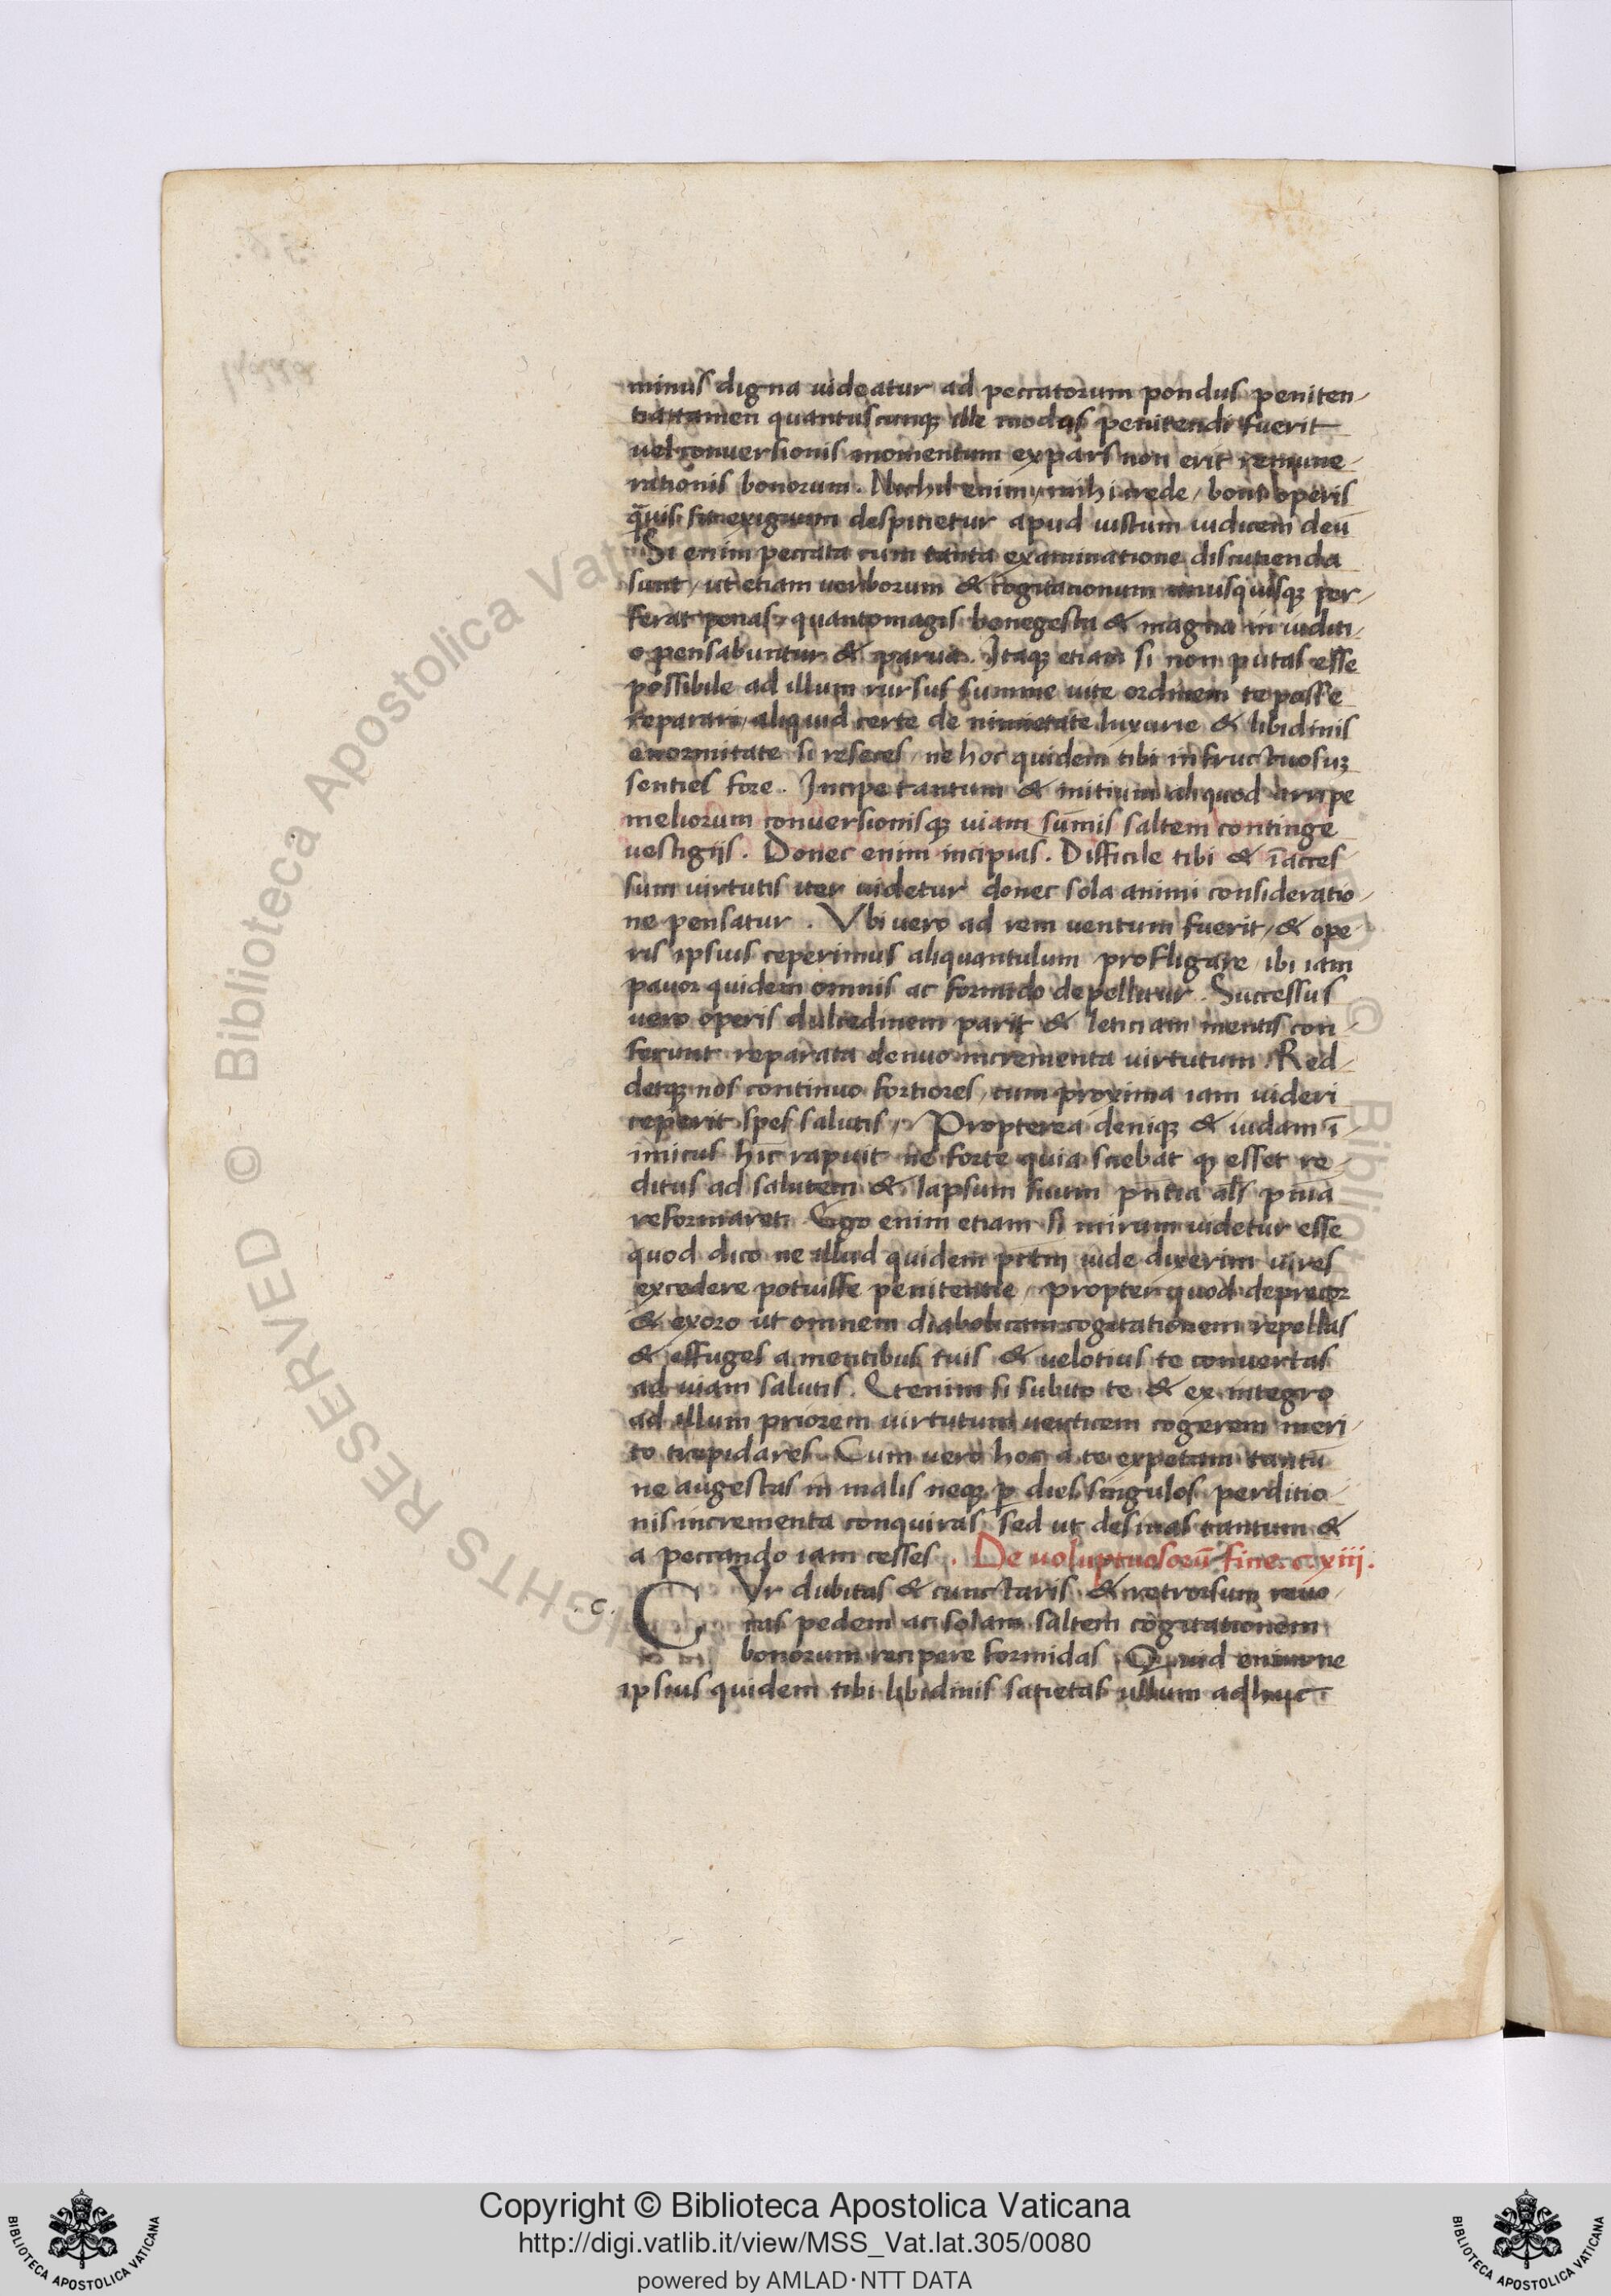 minus digna uideatur ad peccatorum pondus peniten
tia tamen quantuscunqꝫ ille modus penitendi fuerit
uel conuersionis momentum expars non erit remune
rationis bonorum. Nichil enim / mihi crede / boni operis
q̄uis sit exiguum despicietur apud iustum iudicem deū
Si enim peccata cum tanta examinatione discutienda
sunt / ut etiam uerborum & cogitationum unusquisqꝫ per
ferat penas / quantomagis bonegesta & magna in iuditi
o pensabuntur & parua. Itaqꝫ etiam si non putas esse
possibile ad illum rursus summe uite ordinem te posse
reparari / aliquid certe de nimietate luxurie & libidinis
enormitate si reseces / ne hoc quidem tibi infructuosuꝫ
senties fore. Incipe tantum & initium aliquod arripe
meliorum conuersionisqꝫ uiam sūmis saltem continge
uestigiis. Donec enim incipias. Difficile tibi & īacces
sum uirtutis iter uidetur donec sola animi consideratio
ne pensatur. Vbi uero ad rem uentum fuerit / & ope
ris ipsius ceperimus aliquantulum profligare / ibi iam
pauor quidem omnis ac formido depellitur. Successus
uero operis dulcedinem parit & leticiam mentis con
ferunt reparata denuo incrementa uirtutum Red
detqꝫ nos continuo fortiores / cum proxima iam uideri
ceperit spes salutis / Propterea denique & iudam ī
imicus hīc rapuit ne forte quia sciebat qꝫ esset re
ditus ad salutem & lapsum suum
reformaret. Ego enim etiam si mirum uidetur esse
quod dico ne illud quidem iude dixerim uires
excedere potuisse penitentie / propter quod deprecor
& exoro ut omnem diabolicam cogitationem repellas
& effuges a mentibus tuis & uelotius te conuertas
ad uiam salutis. Etenim si subito te & ex integro
ad illum priorem uirtutum uerticem cogerem meri
to trepidares. Cum uero hoc a te expetam tantū
ne augescas in malis neqꝫ ꝑ dies singulos perditio
nis incrementa conquiras / sed ut desinas tantum &
a peccando iam cesses. De uoluptuosoꝝ fine. c. xiii.
.c. CVr dubitas & cunctaris & retrorsum reuo
cas pedem ac solam saltem cogitationem
bonorum recipere formidas Quid enim ne
ipsius quidem tibi libidinis satietas ullum adhuc
© Biblioteca Apostolica Vaticana
RIGHTS RESERVED
Copyright © Biblioteca Apostolica Vaticana
http://digi.vatlib.it/view/MSS_Vat.lat.305/0080
powered by AMLAD·NTT DATA
BIBLIOTECA APOSTOLICA VATICANA
BIBLIOTECA APOSTOLICA VATICANA